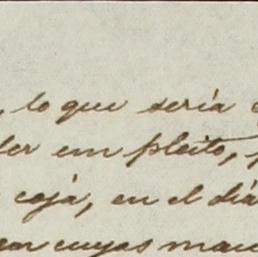 , lo que sería
der un pleito,
coja, en el día
en cuyas man